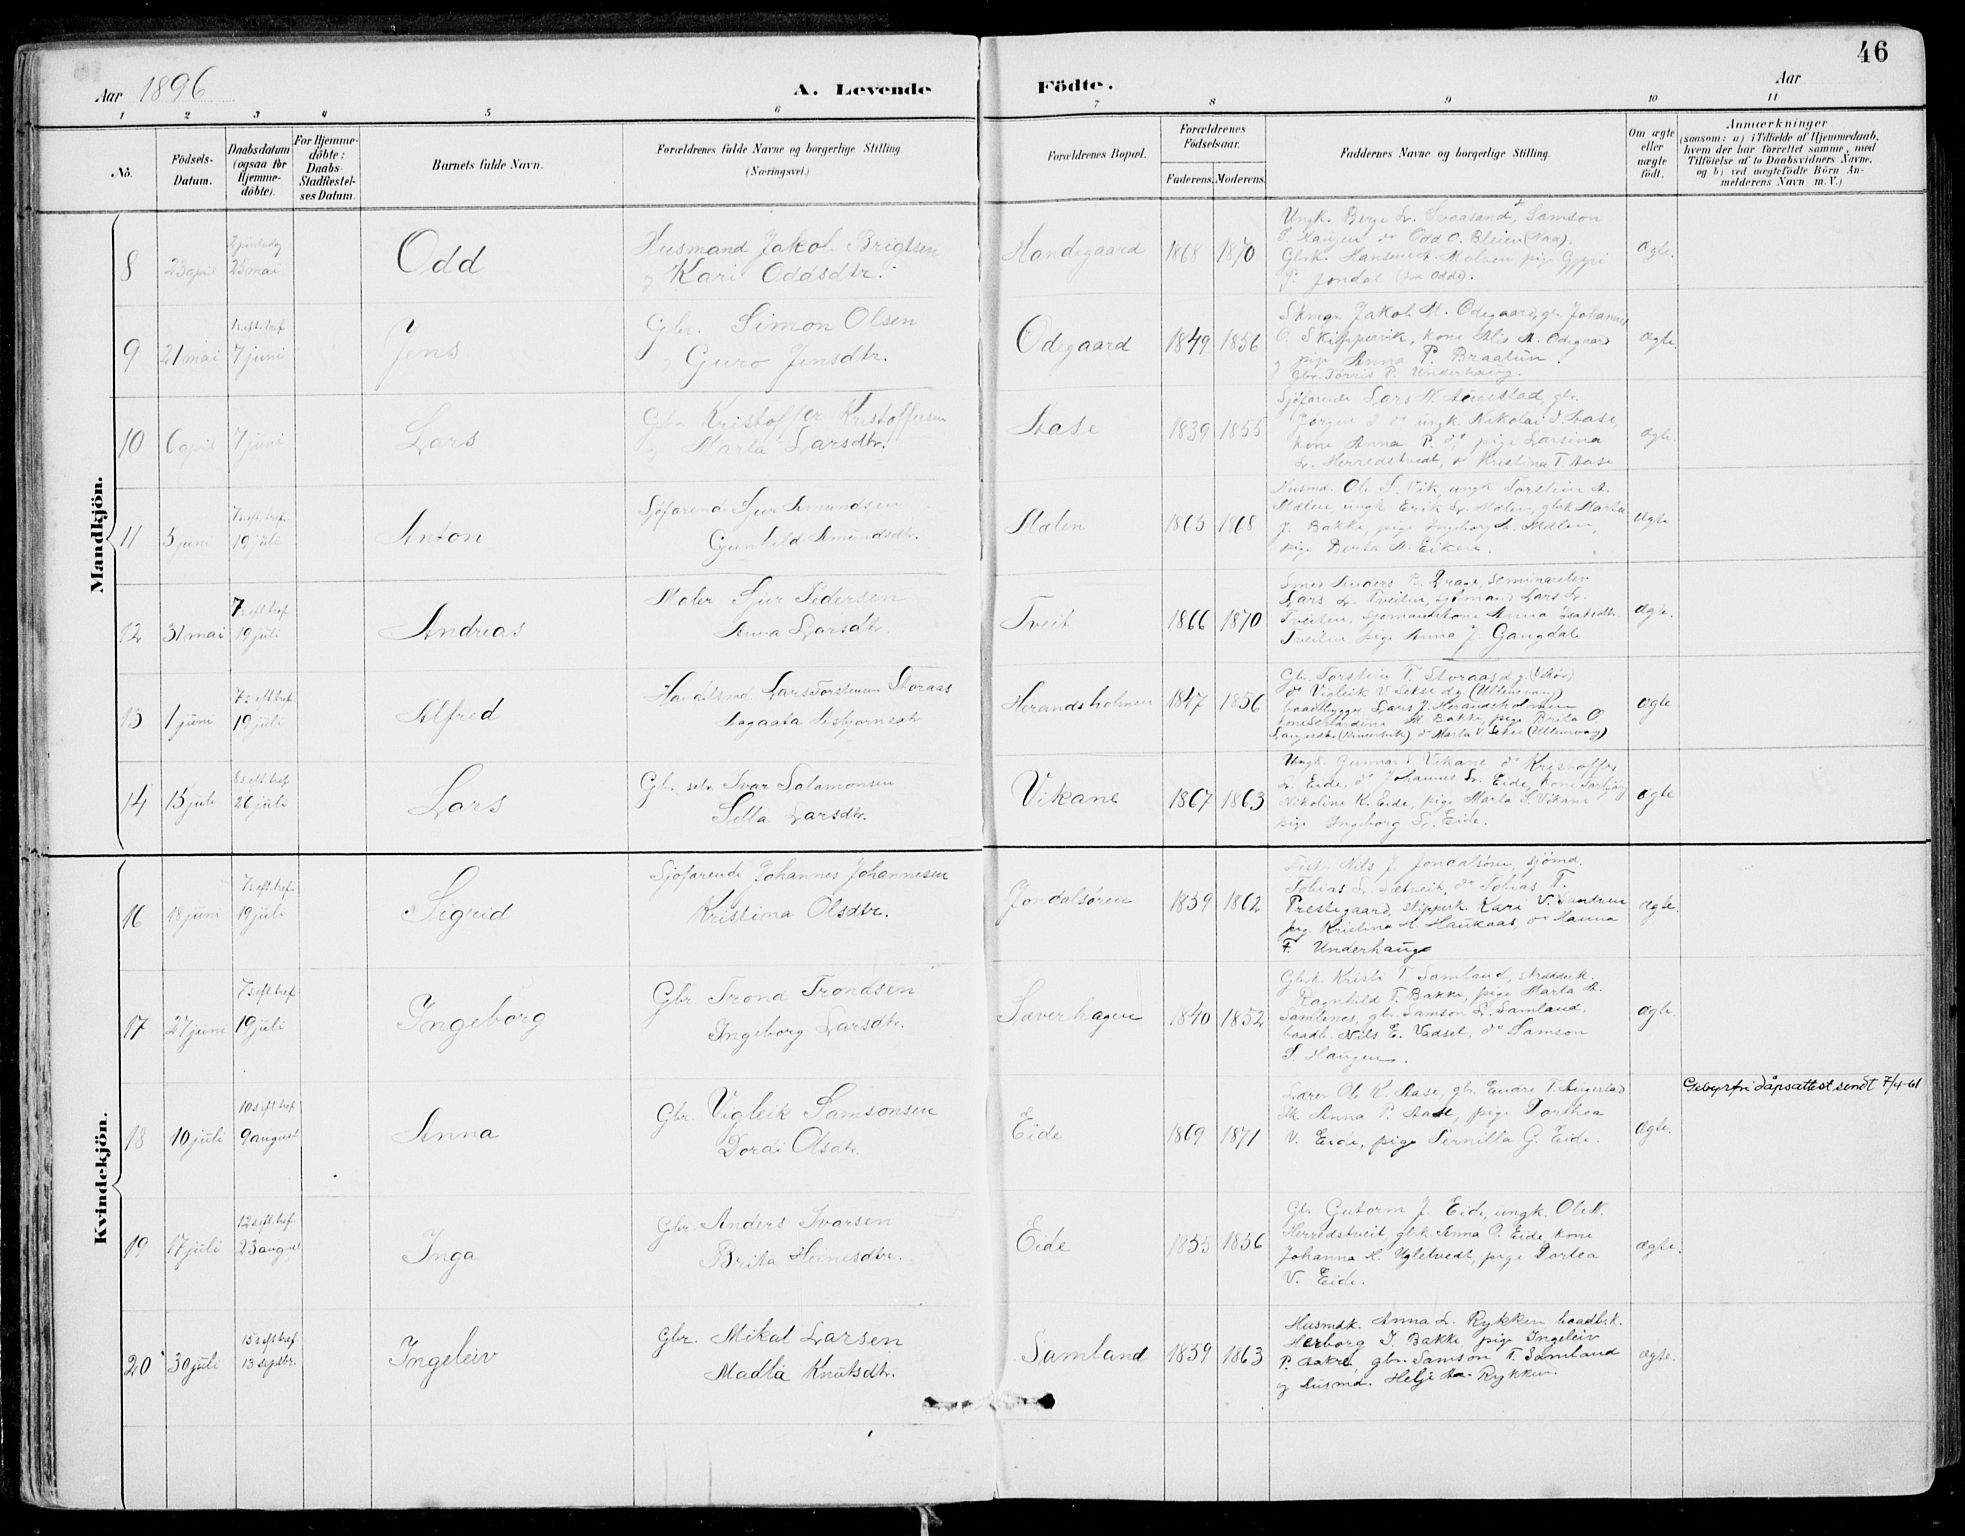 46
Aar 1896
A. Levende Födte.
Aar
1 2 3 4 5 6 7 8 9 10 11
No.
Födsels-Datum.
Daabsdatum (ogsaa for Hjemme-döbte).
For Hjemme-döbte: Daabs-Stadfæstel-ses Datum.
Barnets fulde Navn.
Forældrenes fulde Navne og borgerlige Stilling. (Næringsvei.)
Forældrenes Bopæl.
Forældrenes Födselsaar.
Faderens. Moderens.
Faddernes Navne og borgerlige Stilling.
Om ægte eller uægte födt.
Anmærkninger
(saasom: a) i Tilfælde af Hjemmedaab,
hvem der har forrettet samme, med
Tilföielse af to Daabsvidners Navne,
og b) ved uægtefödte Börn An-
melderens Navn m. V.)
Mandkjön.
8 23 april 2 pintsedag 25 mai Odd
Husmand Jakob Brigtsen
og Kari Oddsdtr.
Handegaard 1868 1870
Ungk. Berge L. Svaasand, Samson
S. Haugen do Odd O. Bleien (Naa),
Gbrk. Hansine Molven, pige
Jondal (fra Odde).
Ægte.
9 21 mai 1 s. eft. tref 7 juni Jens
Gbr. Simon Olsen
og Guro Jensdtr.
Ødegaard 1849 1856
Jakob M. Ødegaard, gbr. Johannes
O. Skippervik, kone Alis A. Ødegaard
pige Anna P. Braatun.
Gbr. Torris P. Underhaug.
Ægte.
10 6 april 7 juni Lars
Gbr Kristoffer Kristoffersen
og Marta Larsdtr.
Aase 1839 1855
Sjöfarende Lars N. Augestad, gbr.
Jörgen do ungk Nikolai J. Aase,
kone Anna P. do, pige Larsina
L. Herredstvedt, do Kristina T. Aase
Ægte.
11 5 juni 7 s. eft. tref. 19 juli Anton
Sjöfarende Sjur Amundsen
Gunhild Amundsdtr.
Mælen 1865 1868
Husmd. Ole S. Vik, ungk Torstein A.
Mælen, ungk Erik L. Mælen, gbrk Marta
J. Bakke, pige Ingeborg A. Mælen,
pige Berta A. Eiken.
Ægte
12 31 mai 7 s. eft. tref. 19 juli Andreas
Maler Sjur Pedersen
Anna Larsdtr.
Tveit 1866 1870
Smed Anders B. seminarelev
Lars L. Tveiten, sjömand Lars L.
Tveiten, sjömandskone Anna Isaksdtr.
Tveiten pige Anna J Gangdal
Ægte.
13 1 juni 7 s. eft. tref 19 juli Alfred
Handelsmd. Lars Torsteinsen Storaas
Aagaata Asbjörnsdtr
Herandsholmen 1847 1856
Gbr. Torstein T. Storaas d.y. (Vikör)
do Vigleik V Sekse d.y. (Ullensvang)
baadbygger Lars J. Herandsholmen
kone M Bakke, pige Brita O.
do Marta V. Sekse (Ullensvang)
Ægte
14 15 juli 8 s. eft. tref 26 juli Lars
Gbr. selv. Ivar Salamonsen
Silla Larsdtr.
Vikane 1867 1863
Ungk Gunnar Vikane do Kristoffer
L. Eide, do Johannes L. Eide, kone Torbjörg
Nikoline K. Eide, pige Marta S. Vikane
pige Ingeborg L. Eide.
Ægte
Kvindekjön.
16 18 juni 7 s. eft. tref. 19 juli Sigrid
Sjöfarende Johannes Johannesen
Kristina Olsdtr.
Jondalsören 1859 1862
Nils J. Jondalsören, sjömd.
Tobias L. Sætveit, do Tobias T.
Prestegaard, skipperk. Kari V. Samland
pig. Kristina H. Haukaas, do Hanna
F. Underhaug
Ægte.
17 27 juni 7 s. eft. tref 19 juli Ingeborg
Gbr Trond Trondsen
Ingeborg Larsdtr.
Sæverhagen 1840 1852
Gbrk. Kristi T. Samland, skrædderk.
Ragnhild T. Bakke, pige Marta A.
Samlenes, gbr. Samson L. Samland,
baadb. Nils E. Vadset, do Samson
S. Haugen.
Ægte.
18 10 juli 10 s eft tref 9 august Anna
Gbr. Vigleik Samsonsen
Dordi Olsdtr.
Eide 1869 1871
Lærer Ole K. Aase, gbr Endre T. Augestad
Anna P. Aase, pige Dorthea
V. Eide, pige Pernilla G. Eide.
Ægte.
Gebyrfri dåpsattest sendt 7/4-61
19 17 juli 12 s eft tref 23 august Inga
Gbr. Anders Ivarsen
Brita
Eide 1855 1856
Gbr. Gutorm J. Eide, ungk. Ole N.
Herredstveit, gbrk Anna O. Eide, kone
Johanna H. Ugletvedt, pige Dortea
V. Eide.
Ægte.
20 30 juli 15 s eft tref 13 septbr. Ingeleiv
Gbr. Mikal Larsen
Madla Knutsdtr.
Samland 1859 1863
Husmdk. Anna L. Rykken baadbk.
Herborg J. Bakke pige Ingeleiv
P. Aakre, gbr. Samson T. Samland
og husmd. Helje Aa. Rykken.
Ægte.